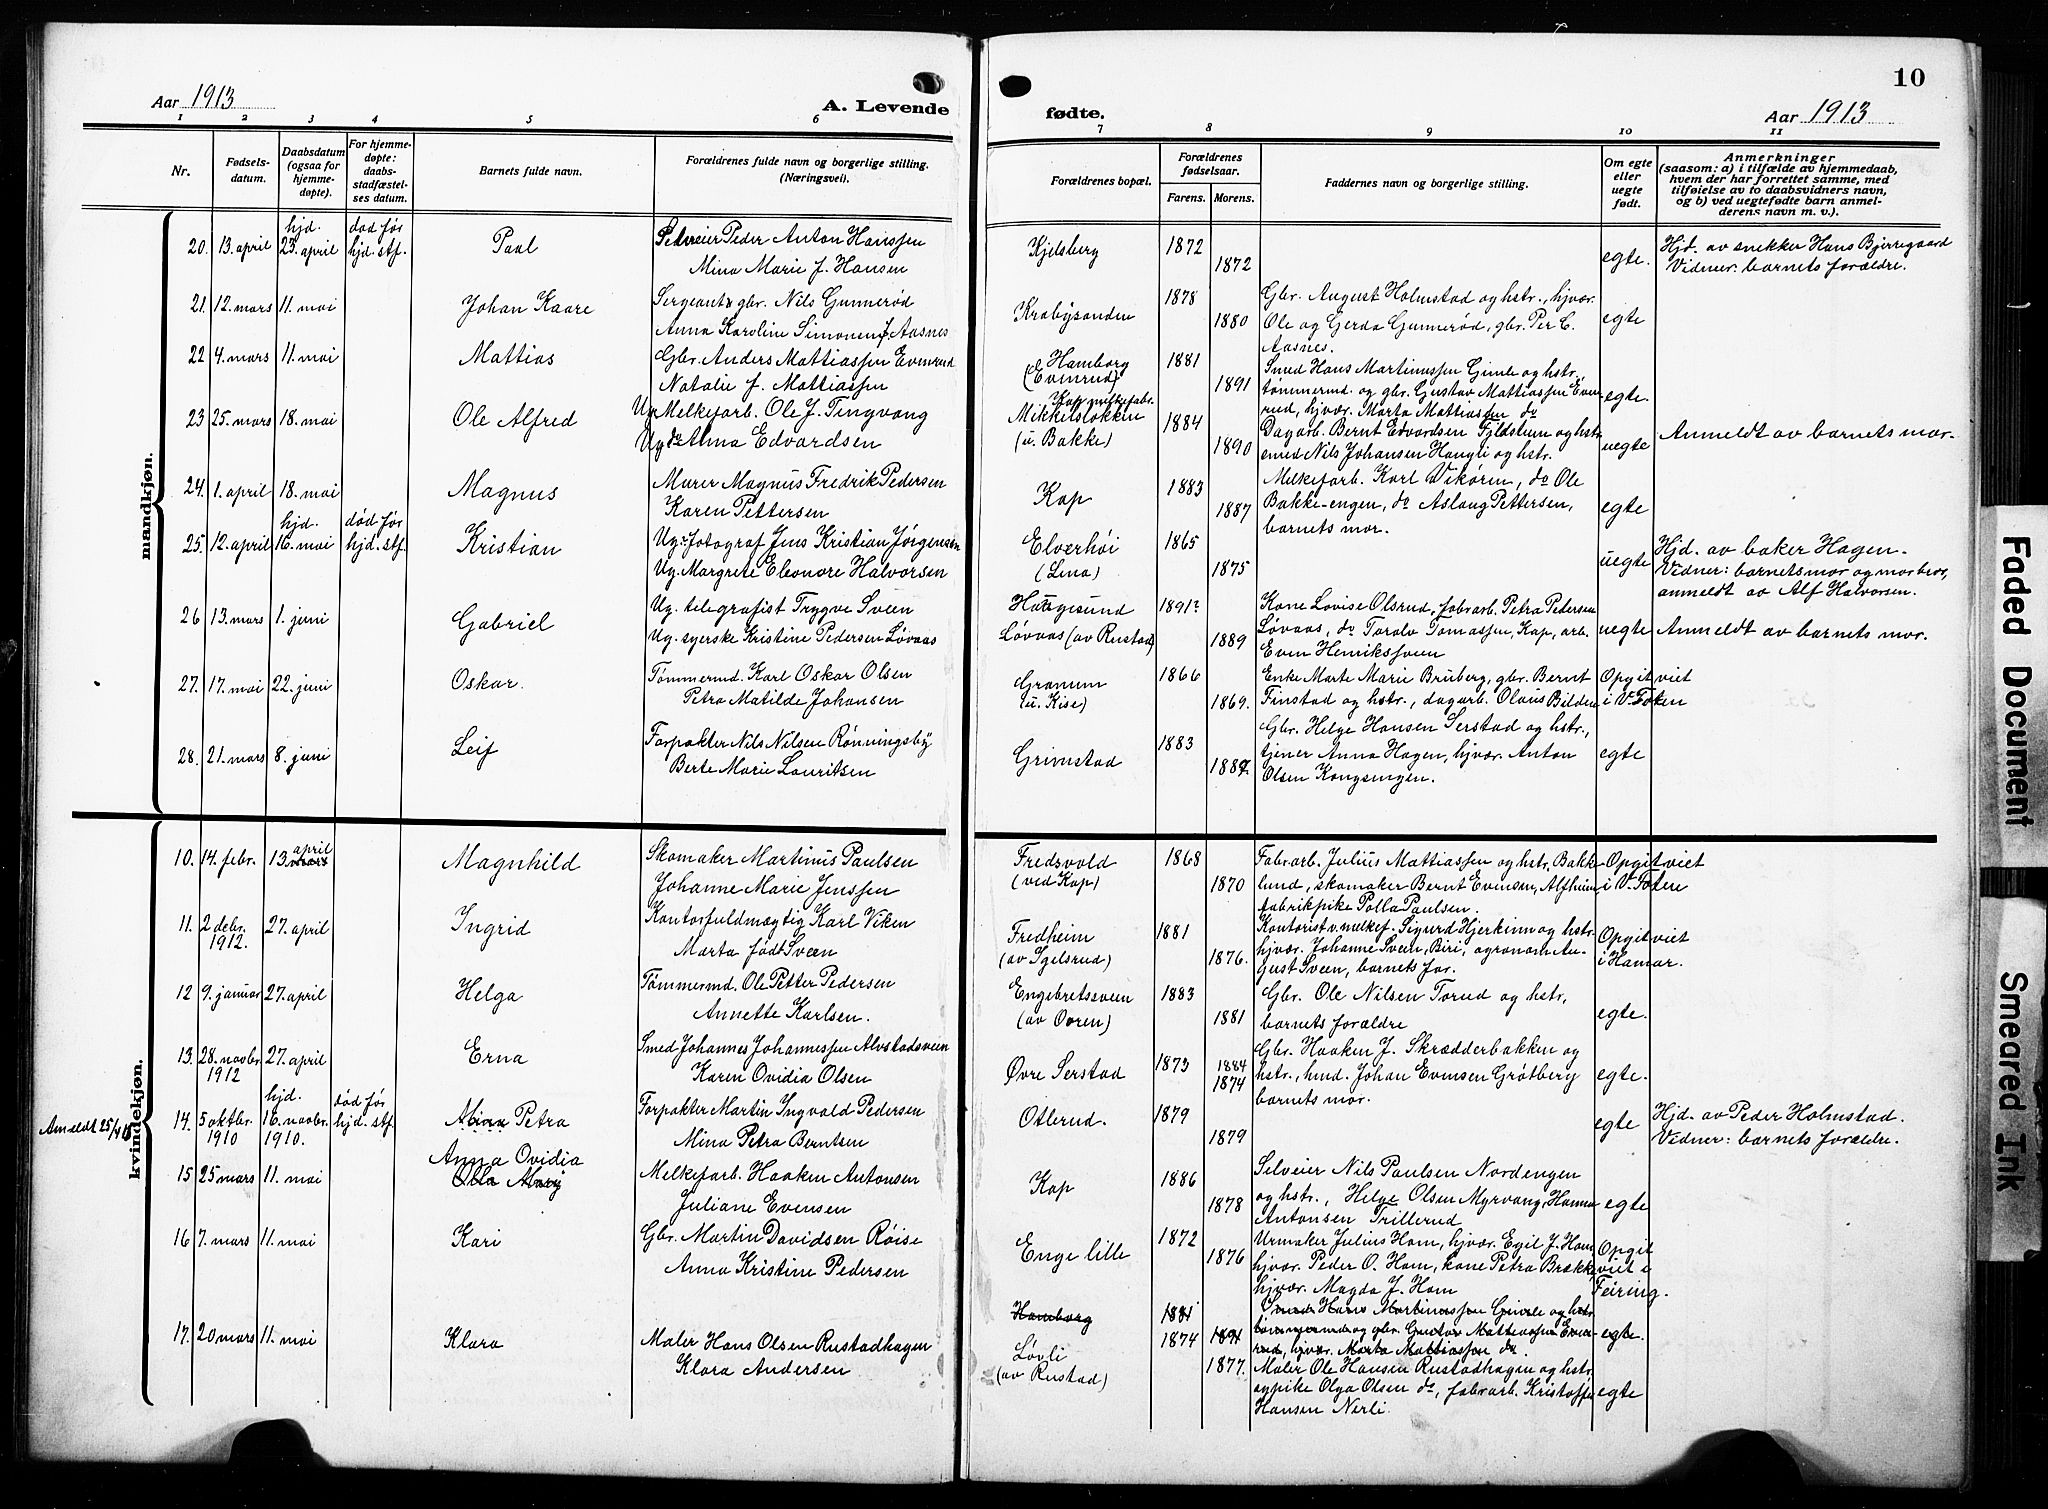 10
Aar 1913
A. Levende
fødte.
Aar 1913
1 2 3 4 5 6 7 8 9 10 11
Nr.
Fødsels-
datum.
Daabsdatum
(ogsaa for
hjemme-
døpte).
For hjemme-
døpte:
daabs-
stadfæstel-
ses datum.
Barnets fulde navn.
Forældrenes fulde navn og borgerlige stilling.
(Næringsvei).
Forældrenes bopæl.
Forældrenes
fødselsaar.
Farens. Morens.
Faddernes navn og borgerlige stilling.
Om egte
eller
uegte
født.
Anmerkninger
(saasom: a) i tilfælde av hjemmedaab,
hvem der har forrettet samme, med
tilføielse av to daabsvidners navn,
og b) ved uegtefødte barn anmel-
derens navn m. v.).
mandkjøn.
20. 13. april hjd. 23. april død før hjd. stf. Paul
Selveier Peder Anton Hanssen
Mina Marie J. Hansen
Kjelsberg 1872 1872 egte.
Hjd. av snekker Hans Bjerregaard
Vidner: barnets forældre.
21. 12. mars 11. mai Johan Kaare
Sergeant & gbr. Nils Gunnerød
Anna Karoline Simonsen f. Aasnes
Krabysanden 1878 1880
Gbr. August Holmstad og hstr., hjvær.
Ole og Gerda Gunnerød, gbr. Per C.
Aasnes.
egte
22 4. mars 11. mai Mattias
Gbr. Anders Mattiassen Evenrud
Natalie J. Mattiassen
Hamborg
(Evenrud)
1881 1891
Smed Hans Martinussen Gimle og hstr.,
tømmermd. og gbr. Gustav Mattiassen Even-
rud, hjvær. Marta Mattiassen do
egte.
23 25. mars 18. mai Ole Alfred
Ug. Melkefarb. Ole J. Tingvang
Ug. do Alma Edvardsen
Kap melkefabr.
Mikkelsløkken
(u. Bakke)
1884 1890
Dagarb. Bernt Edvardsen Fjeldstuen og hstr
smed Nils Johansen Haugli og hstr.
uegte
Anmeldt av barnets mor.
24. 1. april 18. mai Magnus
Murer Magnus Fredrik Pedersen
Karen Pettersen
Kap 1883 1887
Melkefarb. Karl Vikøren, do Ole
Bakke-engen, do Aslaug Pettersen,
barnets mor.
egte
25. 12. april hjd. 16. mai død før hjd. stf. Kristian
Ug. fotograf Jens Kristian Jørgensen
Ug. Margrete Eleonore Halvorsen
Elverhøi
(Lena)
1865 1875 uegte
Hjd. av baker Hagen.
Vidner: barnets mor og morbror,
anmeldt av Alf Halvorsen.
26 13. mars 1. juni Gabriel
Ug. telegrafist Trygve Sveen
Ug. syerske Kristine Pedersen Løvaas
Haugesund
Løvaas (av Rustad)
1891? 1889
Kone Lovise Olsrud, fabrarb. Petra Pedersen
Løvaas, do Torolv Tomassen, Kap, arb.
Even Henrikssveen
uegte
Anmeldt av barnets mor.
27. 17. mai 22. juni Oskar.
Tømmermd. Karl Oskar Olsen
Petra Matilde Johansen
Granum
(u. Kise)
1866 1869.
Enke Marte Marie Bruberg, gbr. Bernt
Finstad og hstr., dagarb. Olaus Bilden
Opgit viet
i V. Toten
28. 21. mars 8. juni Leif
Forpakter Nils Nilsen Rønningsby
Berte Marie Lauritsen
Grimstad 1883 1887.
Gbr. Helge Hansen Serstad og hstr.,
tjener Anna Hagen, hjvær. Anton
Olsen Kongsengen.
egte
kvindekjøn.
10. 14. febr. 13. april mars Magnhild
Skomaker Martinus Paulsen
Johanne Marie Jenssen
Fredsvold
(ved Kap)
1868 1870
Fabrarb. Julius Mattiassen og hstr. Bakk-
lund, skomaker Bernt Evensen, Alfheim
fabrikpike Polla Paulsen.
Opgit viet
i V. Toten
11. 2 debr. 1912. 27. april Ingrid
Kontorfuldmægtig Karl Viken
Marta født Sveen
Fredheim
(av Sgelsrud)
1881 1876.
Kontorist v. melkef. Sigurd Hjerkinn og hstr
hjvær. Johanne Sveen, Biri, agronom Au-
gust Sveen, barnets far.
Opgit viet
i Hamar.
12 9. januar 27. april Helga
Tømmermd. Ole Petter Pedersen
Annette Karlsen.
Engebretssveen
(av Ovren)
1883 1881
Gbr. Ole Nilsen Torud og hstr,
barnets forældre
egte.
13. 28. novbr. 1912 27. april Erna
Smed Johannes Johannessen Alvstadsveen
Karen Ovidia Olsen
Øvre Serstad 1873 1884 1874
Gbr. Haaken J. Skrædderbakken og
hstr., hmd. Johan Evensen Grøtberg
barnets mor.
egte.
Anmeldt 25/4 13
14. 5 oktbr. 1910 hjd. 16. novbr. 1910. død før hjd. stf. Petra
Forpakter Martin Ingvald Pedersen
Mina Petra Berntsen
Otlerud. 1879 1879 egte
Hjd. av Peder Holmstad.
Vidner: barnets forældre.
15 25 mars 11. mai Anna Ovidia
Melkefarb. Haaken Antonsen
Juliane Evensen
Kap 1886 1878
Selveier Nils Paulsen Nordengen
og hstr., Helge Olsen Myrvang, Hanna
Antonsen Trillerud
egte
16 7. mars 11. mai Kari
Gbr. Martin Davidsen Røise
Anna Kristine Pedersen
Enge lille 1872 1876
Urmaker Julius Hom, hjvær. Egil J. Hom
hjvær. Peder O. Hom, kone Petra Brække
hjvær. Magda J. Hom
Opgit
viet i
Feiring.
17. 20 mars 11. mai Klara
Maler Hans Olsen Rustadhagen
Klara Andersen
Hamborg
Løvli
(av Rustad)
1881 1874 1891 1877.
Smed Hans Martinussen Gimle og hstr
tømmermd og gbr. Gustav Mattiassen Even-
rud, hjvær. Marta Mattiassen do.
egte.
Maler Ole Hansen Rustadhagen og hstr
sypike Olga Olsen do, fabrarb. Kristoffer
Hansen Nerli.
egte
Faded Document
Smeared Ink